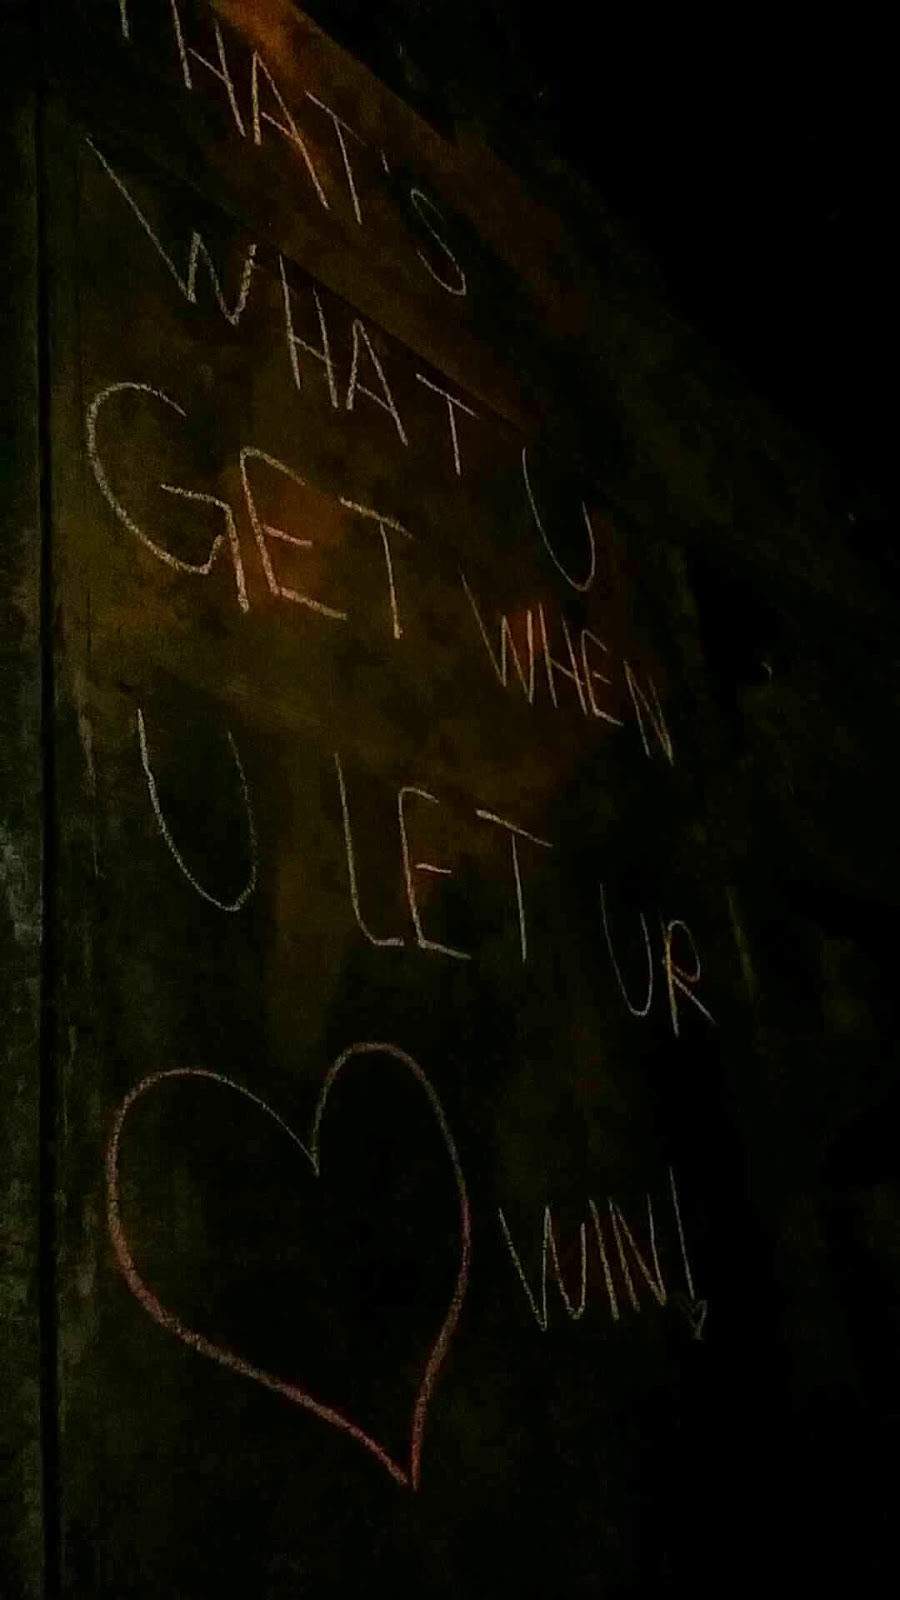 THAT'S
WHAT U
GET WHEN
U LET UR
WIN!